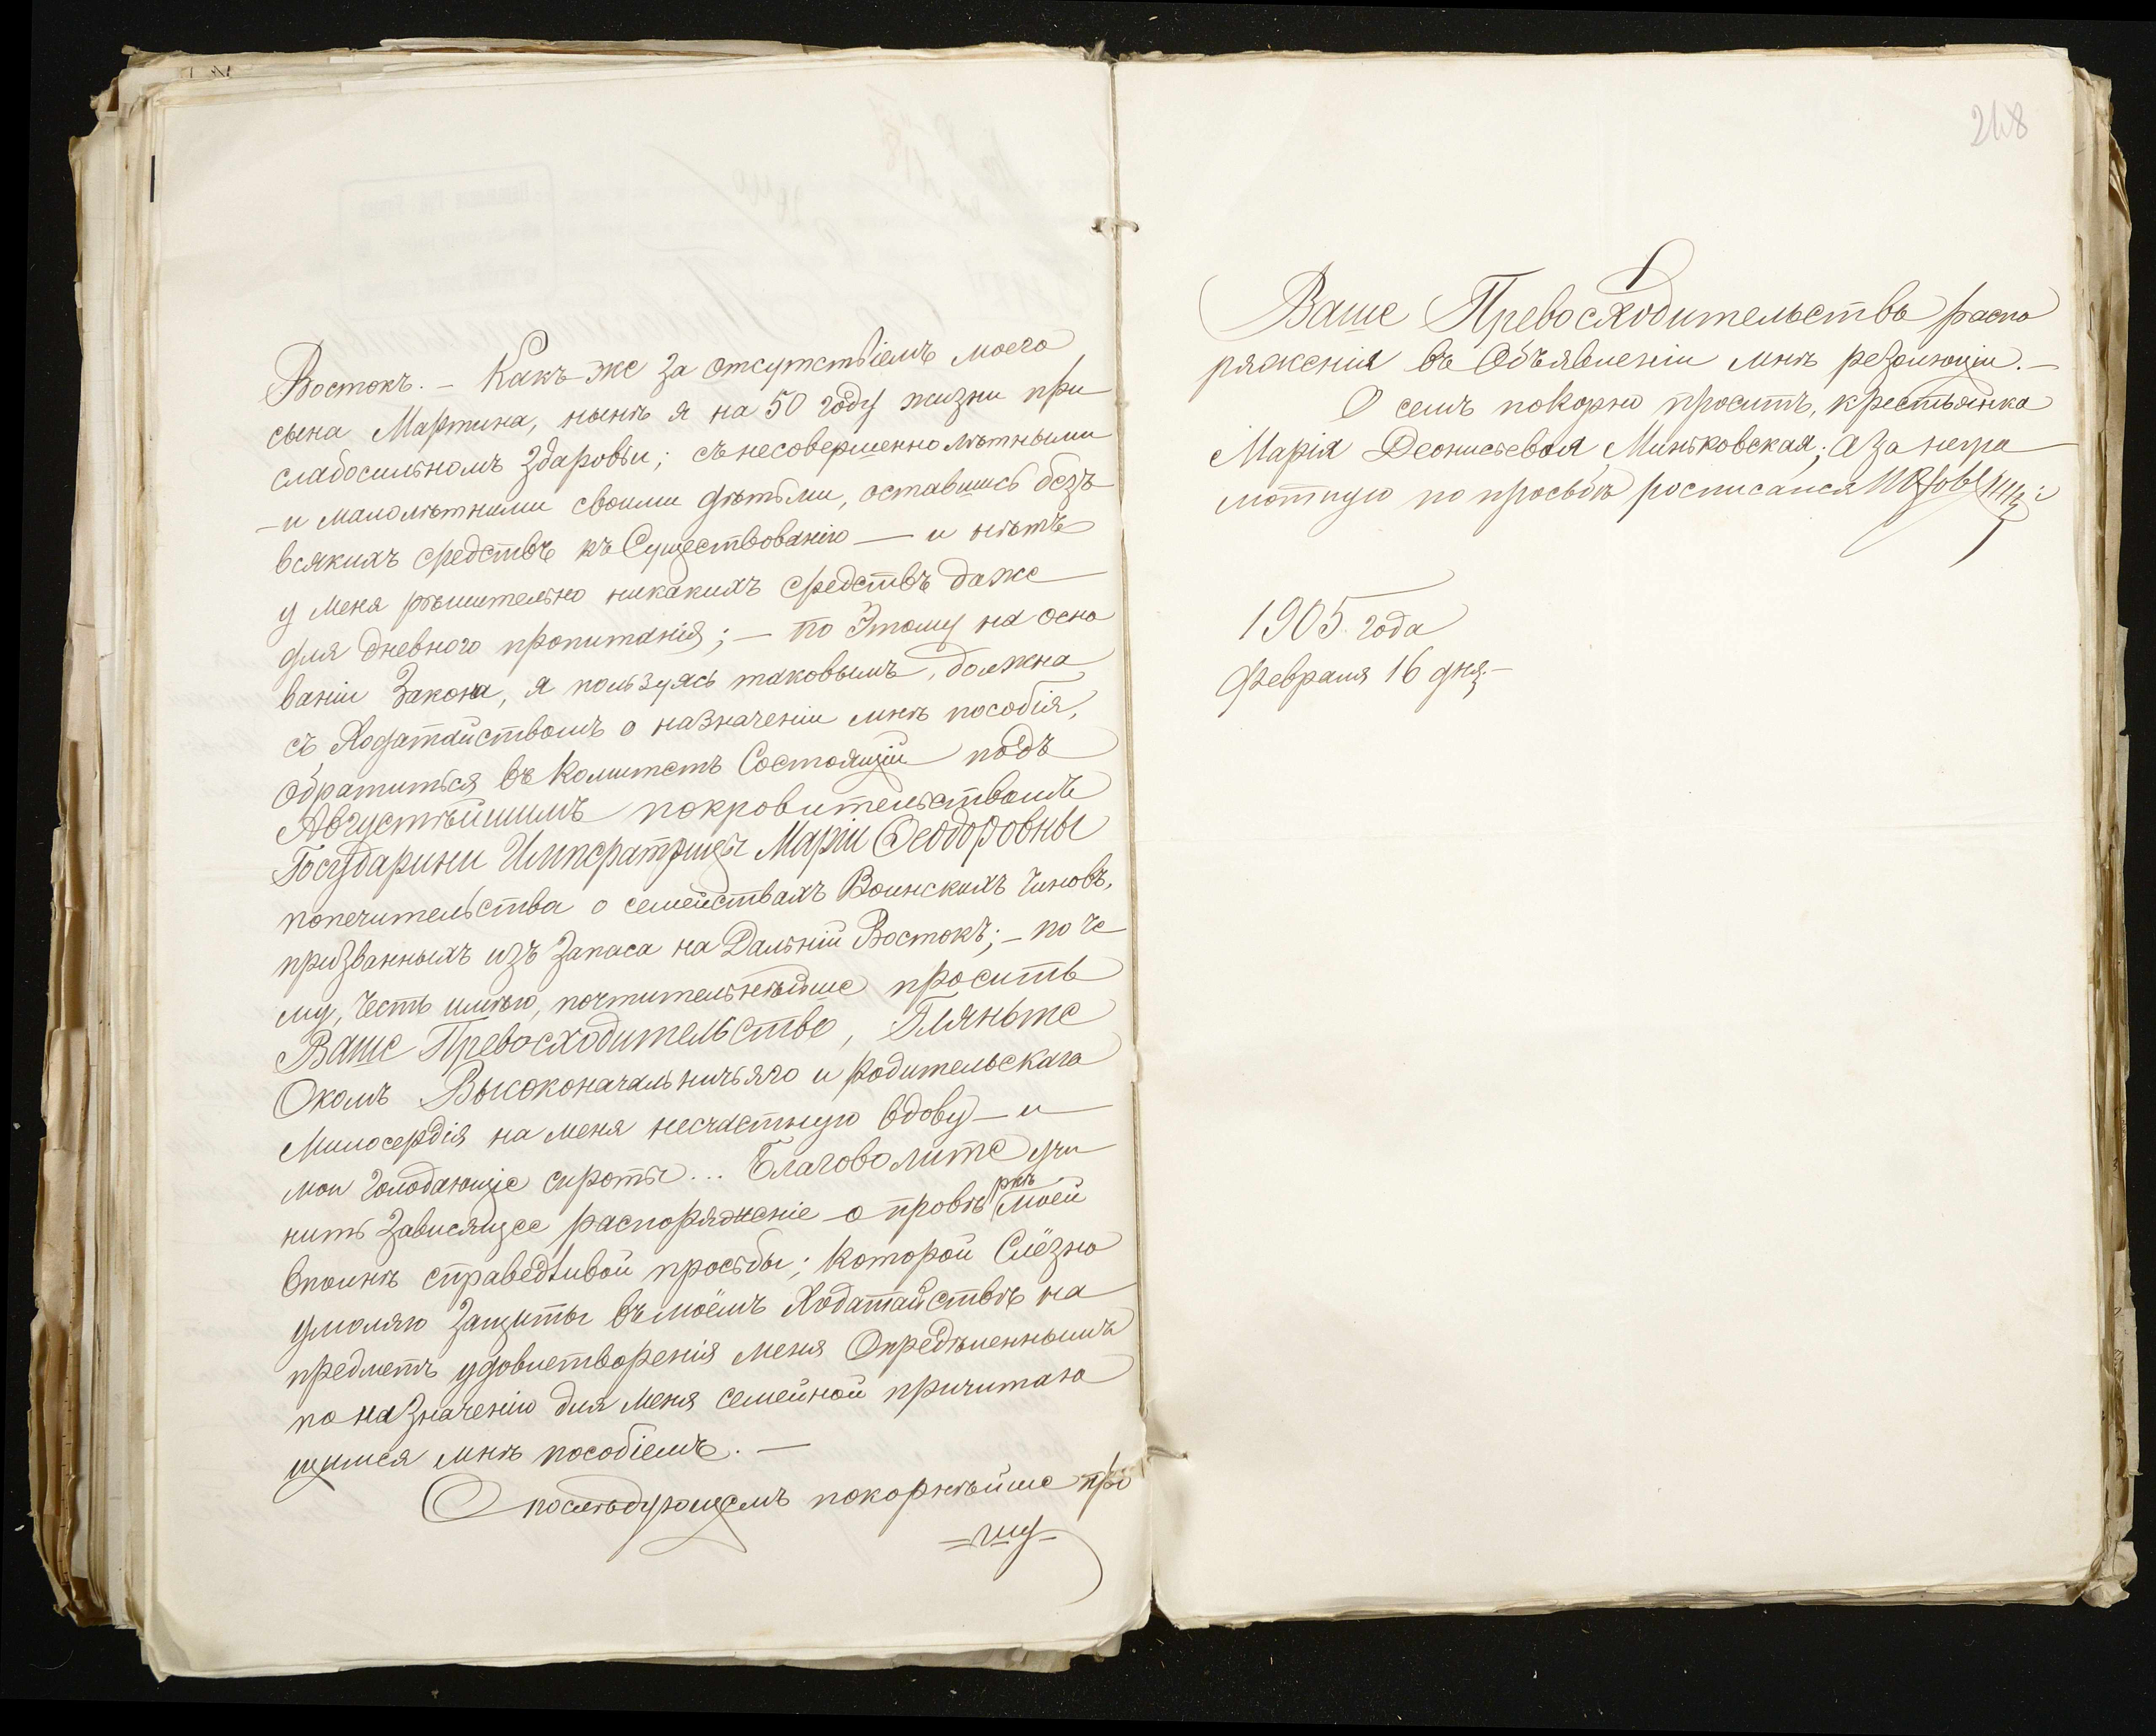 Востокъ. – Какъ-же за отсутствіемъ моего
сына Мартина, нынѣ я на 50 году жизни при
слабосильномъ здаровьи; съ несовершеннолѣтными
– и малолѣтними своими дѣтьми, оставшись безъ
всякихъ средствъ къ Существованію — и нѣтъ
у меня рѣшительно никакихъ средствъ даже
для дневного пропитанія; – по Этому на осно
ваніи Закона, я пользуясь таковымъ, должна
съ Ходатайствомъ о назначеніи мнѣ пособія,
обратиться въ Комитетъ Состоящій подъ
Августѣйшимъ покровительствомъ
Государини Императрицы Маріи Ѳеодоровны
попечительства о семействахъ Воинскихъ Чиновъ,
призванныхъ изъ Запаса на Дальній Востокъ; – по че
му, Честь имѣю, почтительнѣйше просить
Ваше Превосходительство, Гляньте
Окомъ Высоконачальничьяго и родительскаго
Милосердія на меня несчастную вдову – и
мои голодающіе сироты... Благоволите учи
нить Зависящее распоряженіе о провѣ ркѣ моей
вполнѣ справедливой просьбы; которой Слёзно
умоляю Защиты въ моёмъ Ходатайствѣ на
предметъ удовлетворенія меня Опредѣленнымъ
по назначенію для меня семейной причитаю
щимся мнѣ пособіемъ. —
О послѣдующемъ покорнѣйше про
= шу =
218
Ваше Превосходительство распо
ряженія въ Объявленіи мнѣ резолюціи. –
О семъ покорно проситъ, крестьянка
Марія Деонисьевоя Миньковская; а за негра
мотную по просьбѣ росписался
1905 года
Февраля 16 дня. –